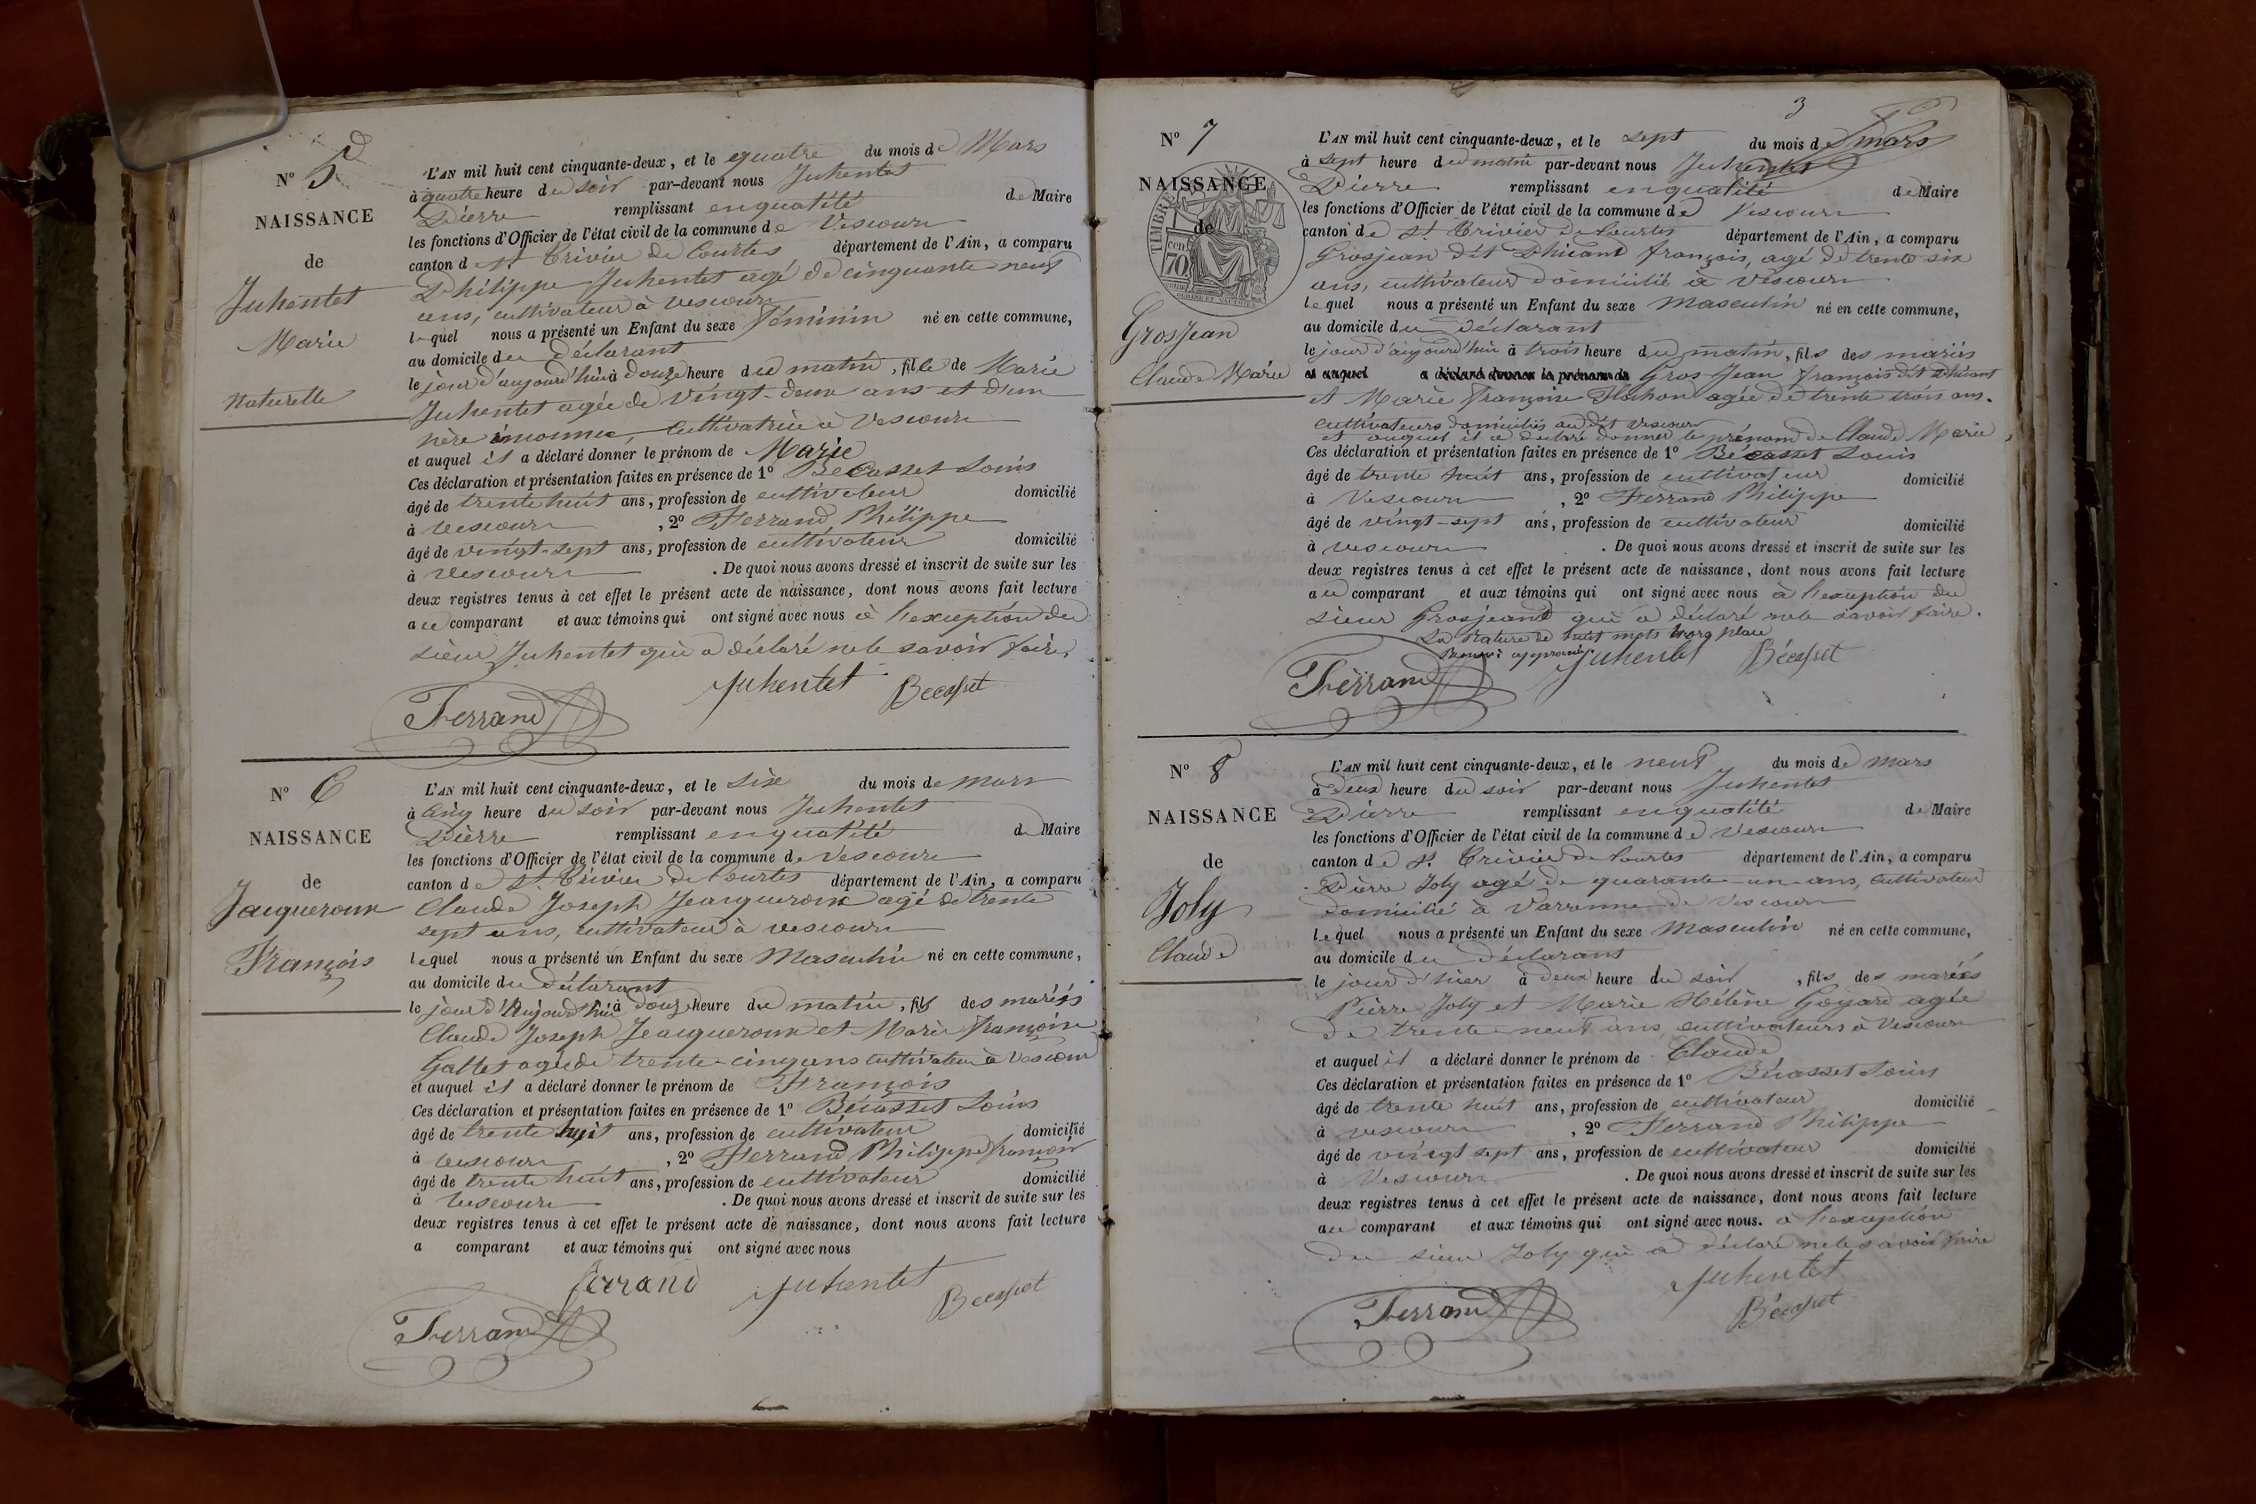 Nº 5
NAISSANCE
de
Juhentet
Marie
Naturelle
L'AN mil huit cent cinquante-deux, et le quatre du mois de Mars
à quatre heure du soir par-devant nous Juhentet
Pierre remplissant en qualité de Maire
les fonctions d'Officier de l'état civil de la commune de Vescours
canton de St Trivier de Courtes département de l'Ain, a comparu
Philippe Juhentet agé de cinquante-neuf
ans, cultivateur à Vescours
lequel nous a présenté un Enfant du sexe féminin né en cette commune,
au domicile du déclarant
le jour d'aujourd'hui à douze heure du matin, fille de Marie
Juhentet agée de vingt-deux ans et d'un
père inconnu, cultivatrice à Vescours
et auquel il a déclaré donner le prénom de Marie
Ces déclaration et présentation faites en présence de 1º Bécasset Louis
âgé de trente huit ans, profession de cultivateur domicilié
à Vescours, 2º Ferrand Philippe
âgé de vingt-sept ans, profession de cultivateur domicilié
à Vescours. De quoi nous avons dressé et inscrit de suite sur les
deux registres tenus à cet effet le présent acte de naissance, dont nous avons fait lecture
au comparant et aux témoins qui ont signé avec nous à l'exception du
sieur Juhentet qui a déclaré ne le savoir faire.
Ferrand Juhentet Bécasset
Nº 6
NAISSANCE
de
Jacqueroux
François
L'AN mil huit cent cinquante-deux, et le six du mois de mars
à cinq heure du soir par-devant nous Juhentet
Pierre remplissant en qualité de Maire
les fonctions d'Officier de l'état civil de la commune de Vescours
canton de St Trivier de Courtes département de l'Ain, a comparu
Claude Joseph Jeacqueroux agé de trente
sept ans, cultivateur à Vescours
lequel nous a présenté un Enfant du sexe Masculin né en cette commune,
au domicile du déclarant
le jour d'Aujourd'hui à douze heure du matin, fils des mariés
Claude Joseph Jeacqueroux et Marie Françoise
Gallet agée de trente-cinq ans cultivateur à Vescours
et auquel il a déclaré donner le prénom de François
Ces déclaration et présentation faites en présence de 1º Bécasset Louis
âgé de trente huit ans, profession de cultivateur domicilié
à Vescours, 2º Ferrand Philippe françois
âgé de trente huit ans, profession de cultivateur domicilié
à Vescours. De quoi nous avons dressé et inscrit de suite sur les
deux registres tenus à cet effet le présent acte de naissance, dont nous avons fait lecture
a comparant et aux témoins qui ont signé avec nous
ferrand Juhentet Bécasset
Ferrand
3
Nº 7
NAISSANCE
de
TIMBRE
cent
70
Grosjean
Claude Marie
L'AN mil huit cent cinquante-deux, et le sept du mois de mars
à sept heure du matin par-devant nous Juhentet
Pierre remplissant en qualité de Maire
les fonctions d'Officier de l'état civil de la commune de Vescours
canton de St Trivier de Courtes département de l'Ain, a comparu
Grosjean dit françois, agé de trente six
ans, cultivateur domicilié à Vescours
lequel nous a présenté un Enfant du sexe Masculin né en cette commune,
au domicile du déclarant
le jour d'aujourd'hui à trois heure du matin, fils des mariés
et auquel a déclaré donner le prénom de Gros Jean françois dit
et Marie françoise agée de trente trois ans.
cultivateurs domiciliés au dit Vescours
et auquel il a déclaré donner le prénom de Claude Marie,
Ces déclaration et présentation faites en présence de 1º Bécasset Louis
âgé de trente huit ans, profession de cultivateur domicilié
à Vescours, 2º Ferrand Philippe
âgé de vingt-sept ans, profession de cultivateur domicilié
à Vescours. De quoi nous avons dressé et inscrit de suite sur les
deux registres tenus à cet effet le présent acte de naissance, dont nous avons fait lecture
au comparant et aux témoins qui ont signé avec nous à l'exception du
sieur Grosjeand qui a déclaré ne le savoir faire.
La rature de huit mots hors place
approuvée
Ferrand Juhentet Bécasset
Nº 8
NAISSANCE
de
Joly
Claude
L'AN mil huit cent cinquante-deux, et le neuf du mois de mars
à deux heure du soir par-devant nous Juhentet
Pierre remplissant en qualité de Maire
les fonctions d'Officier de l'état civil de la commune de Vescours
canton de St Trivier de Courtes département de l'Ain, a comparu
Pierre Joly agé de quarante-un ans, cultivateur
domicilié à Varenne de Vescours
lequel nous a présenté un Enfant du sexe Masculin né en cette commune,
au domicile du déclarant
le jour d'hier à deux heure du soir, fils des mariés
Pierre Joly et Marie Hélène Goyard agée
de trente-neuf ans, cultivateurs à Vescours
et auquel il a déclaré donner le prénom de Claude
Ces déclaration et présentation faites en présence de 1º Bécasset Louis
âgé de trente huit ans, profession de cultivateur domicilié
à Vescours, 2º Ferrand Philippe
âgé de vingt sept ans, profession de cultivateur domicilié
à Vescours. De quoi nous avons dressé et inscrit de suite sur les
deux registres tenus à cet effet le présent acte de naissance, dont nous avons fait lecture
au comparant et aux témoins qui ont signé avec nous. à l'exception
du sieur Joly qui a déclaré ne le savoir faire
Juhentet
Ferrand Bécasset